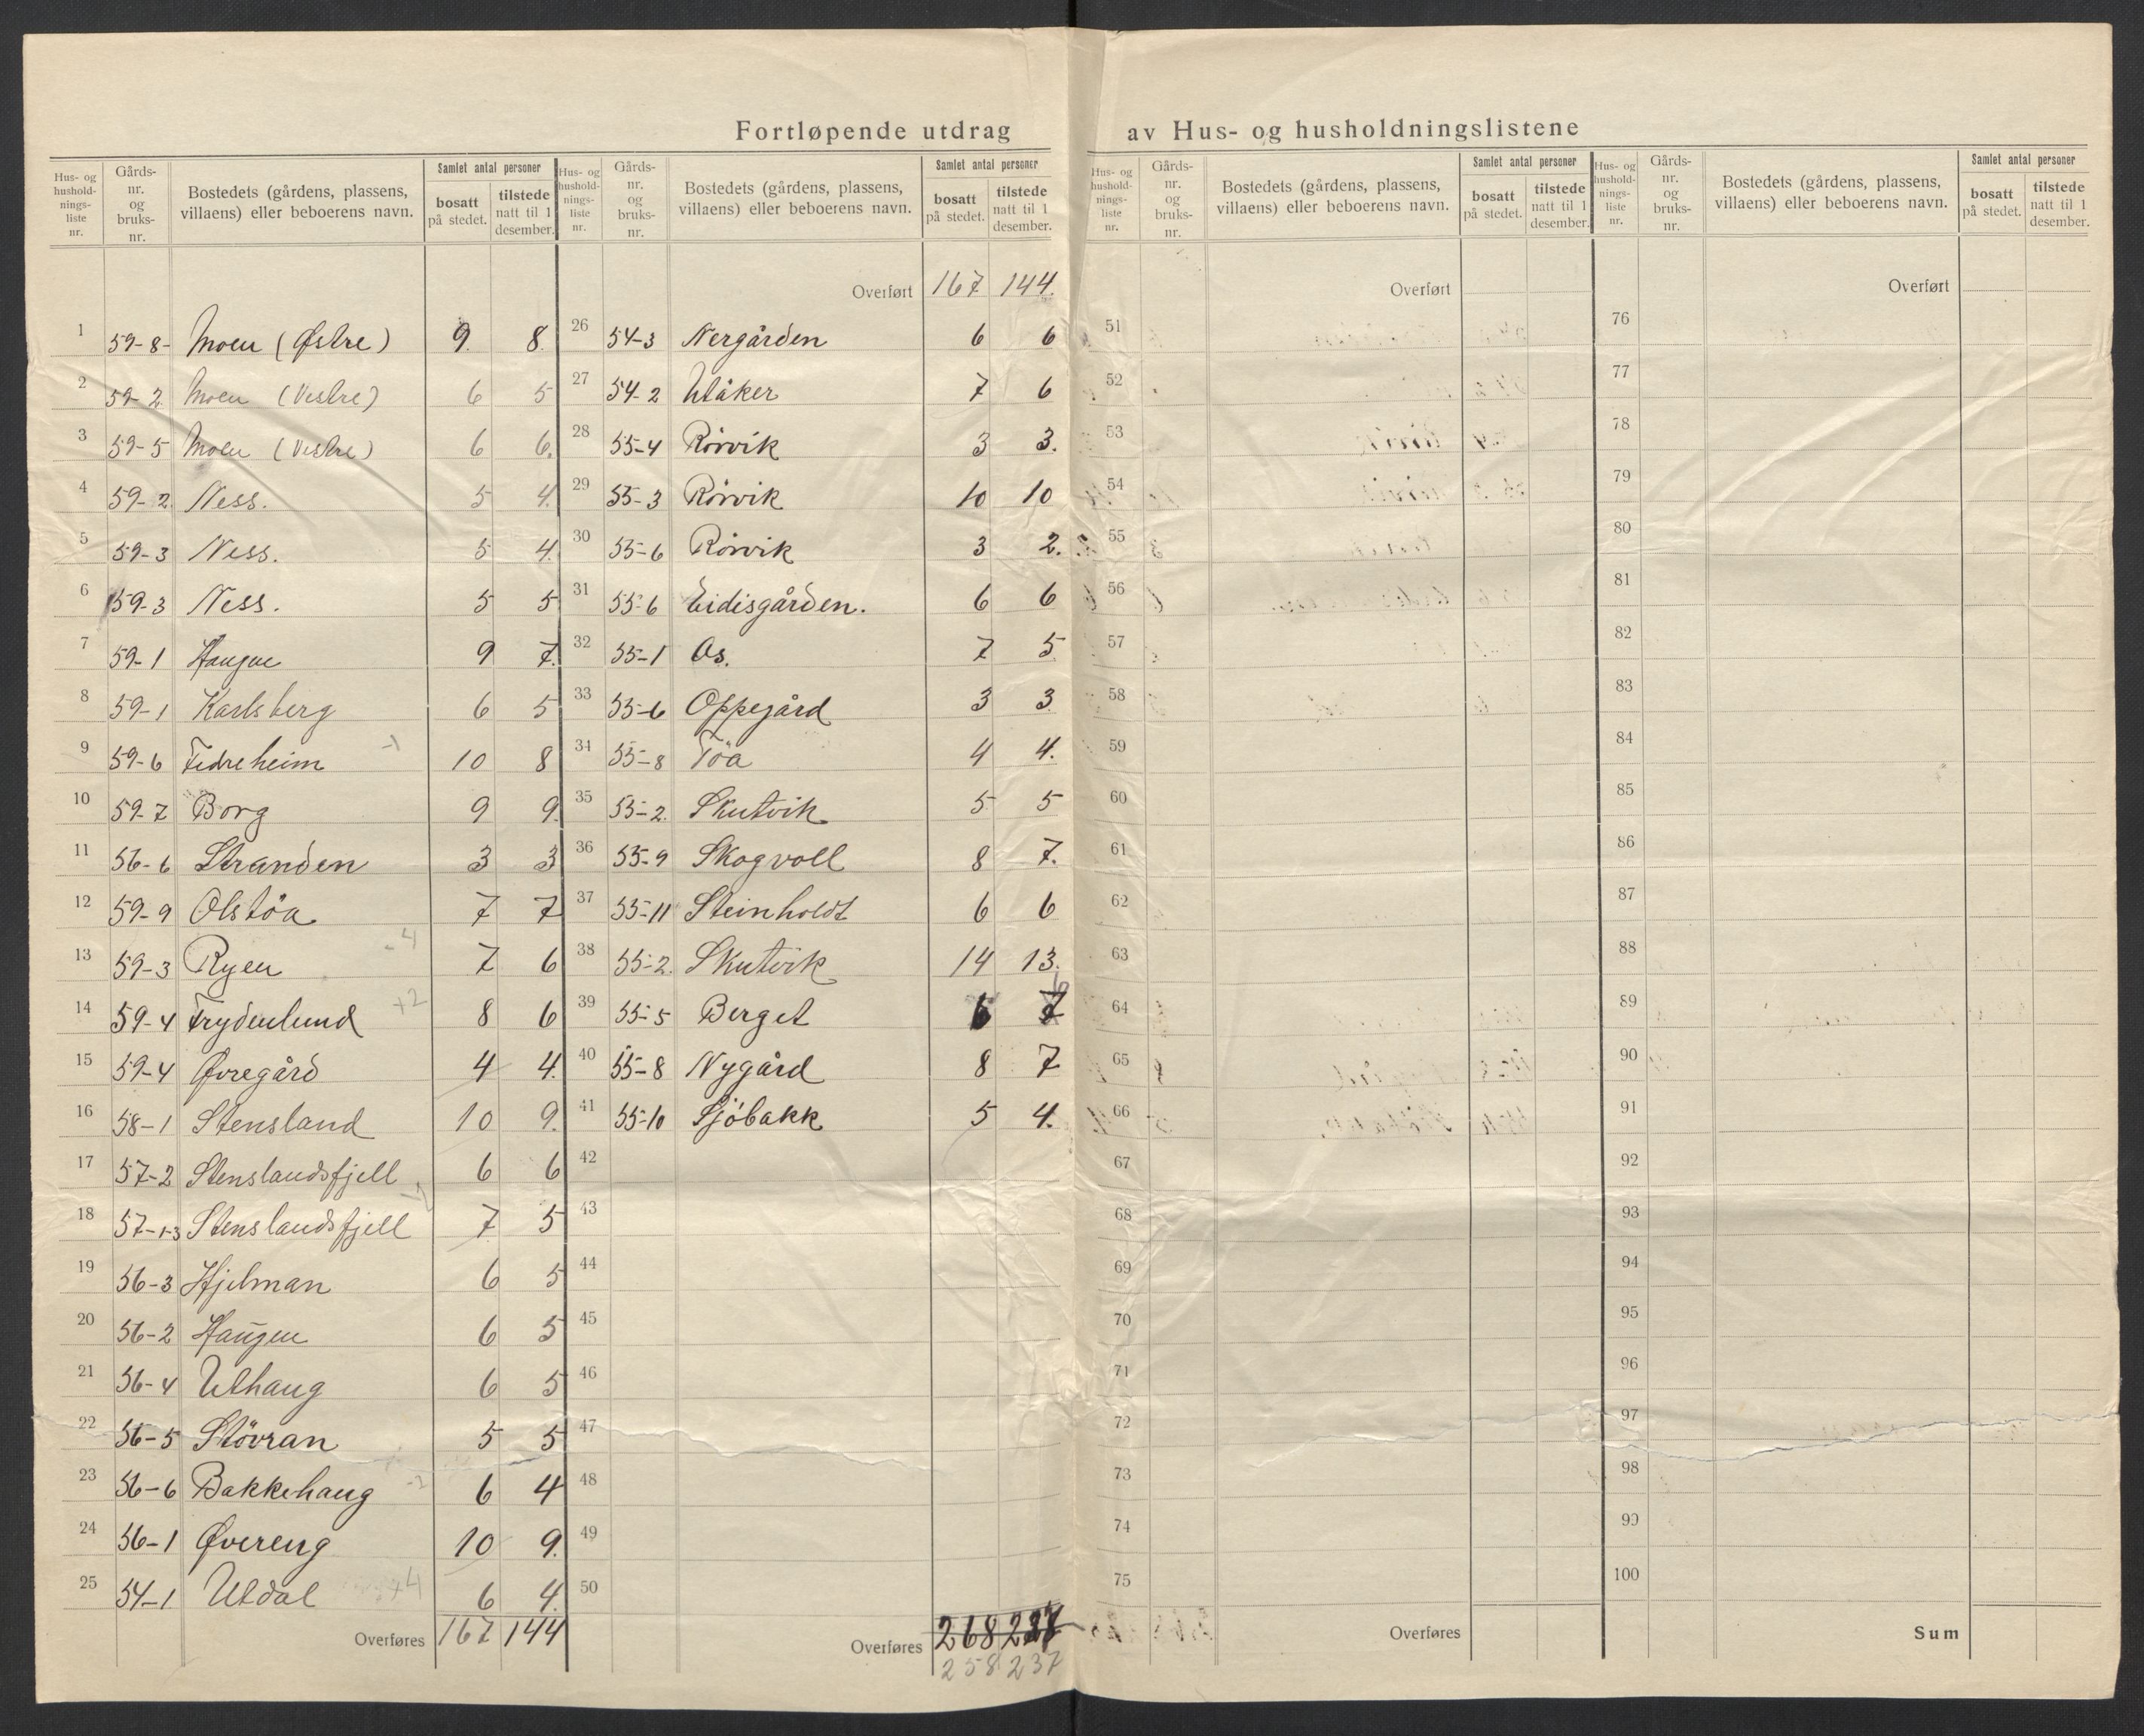 Fortløpende utdrag av Hus- og husholdningslistene
Hus- og hushold-nings-liste nr. Gårds-nr. og bruks-nr. Bostedets (gårdens, plassens, villaens) eller beboerens navn. Samlet antal personer bosatt på stedet. tilstede natt til 1 desember.
1 59-8- Moen (Østre) 9. 8.
2 59-2. Moen (Vestre) 6 5
3 59-5 Moen (Vestre) 6 6.
4 59-2. Ness. 5 4.
5 59-3 Ness. 5 4.
6 59-3 Ness. 5 5
7 59-1 Haugen 9 7.
8 59-1 Karlsberg 6 5
9 59-6 Fedreheim -1 10 8
10 59-7 Borg 9 9.
11 56-6 Stranden 3 3
12 59-9 Olstöa 7 7
13 59-3 Ryen -4 7 6
14 59-4 Frydenlund +2 8 6
15 59-4 Øvregård 4 4.
16 58-1 Stensland 10 9.
17 57-2 Stenslandsfjell 6 6
18 57-1-3 Stenslandsfjell 7 5
19 56-3 Hjelman 6 5
20 56-2 Haugen 6 5
21 56-4 Uthaug 6 5
22 56-5 Stövran 5 5
23 56-6 Bakkehaug -2 6 4
24 56-1 Øvereng 10 9.
25 54-1 Utdal +4 6 4.
Overføres 167 144
Hus- og hushold-nings-liste nr. Gårds-nr. og bruks-nr. Bostedets (gårdens, plassens, villaens) eller beboerens navn. Samlet antal personer bosatt på stedet. tilstede natt til 1 desember.
Overført 167 144.
26 54-3 Nergården 6 6
27 54-2 Utåker 7 6
28 55-4 Rörvik 3 3.
29 55-3 Rörvik 10 10
30 55-6 Rörvik 3 2.
31 55-6 Eidisgården. 6 6
32 55-1 Os. 7 5
33 55-6 Oppegård 3 3
34 55-8 Töa 4 4.
35 55-2. Skutvik 5 5
36 55-9 Skogvoll 8 7.
37 55-11 Steinholdt 6 6
38 55-2. Skutvik 14 13.
39 55-5 Berget 6
40 55-8 Nygård 8 7
41 55-10 Sjöbakk 5 4.
42
43
44
45
46
47
48
49
50
Overføres 268
258 237
Hus- og hushold-nings-liste nr. Gårds-nr. og bruks-nr. Bostedets (gårdens, plassens, villaens) eller beboerens navn. Samlet antal personer bosatt på stedet. tilstede natt til 1 desember.
Overført
51
52
53
54
55
56
57
58
59
60
61
62
63
64
65
66
67
68
69
70
71
72
73
74
75
Overføres
Hus- og hushold-nings-liste nr. Gårds-nr. og bruks-nr. Bostedets (gårdens, plassens, villaens) eller beboerens navn. Samlet antal personer bosatt på stedet. tilstede natt til 1 desember.
Overført
76
77
78
79
80
81
82
83
84
85
86
87
88
89
90
91
92
93
94
95
96
97
98
99
100
Sum